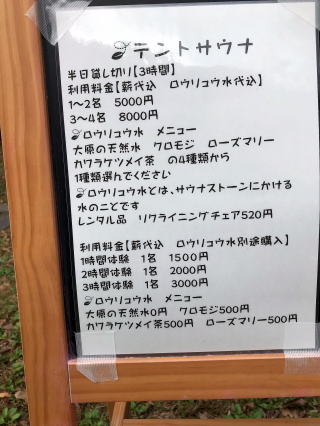 テントサウナ
半日貸し切り【3時間】
利用料金【薪代込　ロウリコウ水代込】
1～2名　5000円
3～4名　8000円
ロウリコウ水　メニュー
大原の天然水　クロモジ　ローズマリー
カワラケツメイ茶　の4種類から
1種類選んでください
ロウリコウ水とは、サウナストーンにかける
水のことです
レンタル品　リクライニングチェア520円
利用料金【薪代込　ロウリコウ水別途購入】
1時間体験　1名　1500円
2時間体験　1名　2000円
3時間体験　1名　3000円
ロウリコウ水　メニュー
大原の天然水0円　クロモジ500円
カワラケツメイ茶500円　ローズマリー500円